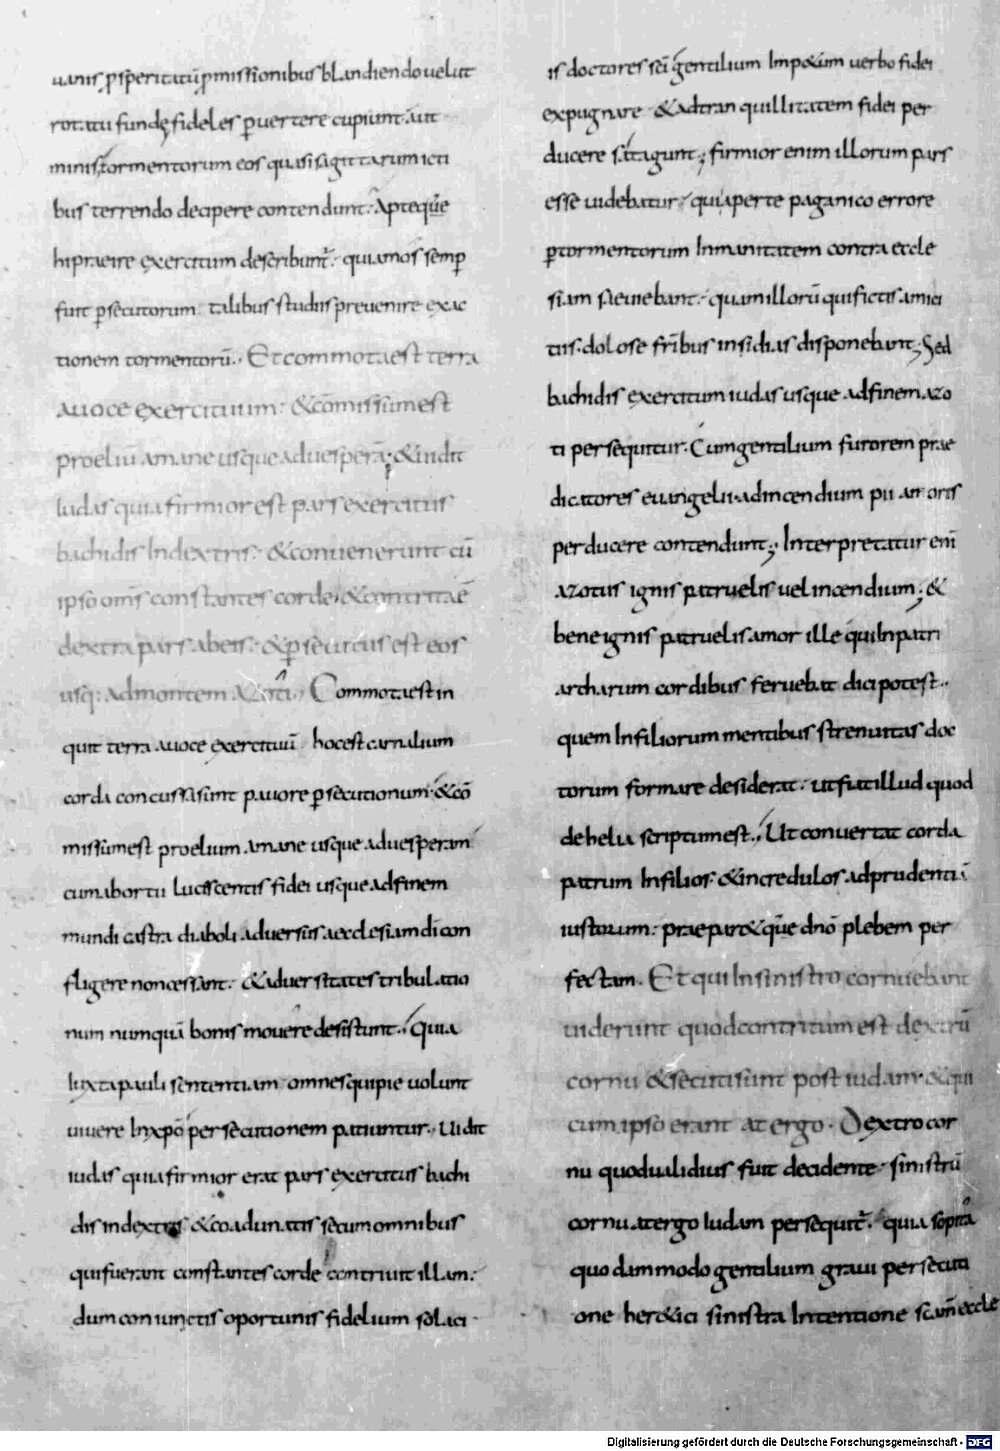 uanis p̱speritatū p̱missionibus blandiendo uelut
rotatu fundę fideles puertere cupiunt· aut
minis tormentorum eos quasi sagittarum icti
bus terrendo decipere contendunt· Apteq̄ue
hi praeire exercitum describunt̄· qui a mos semp
fuit psecutorum talibus studiis preuenire exac
tionem tormentorū· Et commota est terra
a uoce exercituum· &cōmissum est
proeliū a mane usque ad uesperā· & uidit
Iudas quia firmior est pars exercitus
bachidis In dextris· & conuenerunt cū
ipso om̄s constantes corde· & contrita ē
dextra pars ab eis· & p̱secutus est eos
usq: ad montem Azoti· Commota est in
quit terra a uoce exercituū hoc est carnalium
corda concussa sunt pauore p̱secutionum· &cō
missum est proelium a mane usque ad uesperam
cum ab ortu lucescentis fidei usque ad finem
mundi castra diaboli aduersus aecclesiam di con
fligere non cessant· & aduersitates tribulatio
num numquā bonis mouere desistunt· Quia
Iuxta pauli sententiam omnes qui pie uolunt
uiuere In xp̄o persecutionem patiuntur· Uidit
iudas quia firmior erat pars exercitus bachi
dis in dextris & coadunatis secum omnibus
qui fuerant constantes corde contriuit illam·
dum coniunctis oportunis fidelium solaci
is doctores sc̄i gentilium Impetum uerbo fidei
expugnare & ad tranquillitatem fidei per
ducere satagunt; firmior enim illorum pars
esse uidebatur· qui aperte paganico errore
p̱ tormentorum Inmanitatem contra eccle
siam saeuiebant· quam illorū qui fictis amici
tiis· dolose fr̄ibus insidias disponebant; Sed
bachidis exercitum iudas usque ad finem azo
ti persequitur· Cum gentilium furorem prae
dicatores euangelii· ad incendium pii amoris
perducere contendunt; Interpretatur eni̅
azotus ignis patruelis uel incendium; &
bene ignis patruelis amor ille qui In patri
archarum cordibus feruebat dici potest·
quem In filiorum mentibus strenuitas doc
torum formare desiderat· ut fiat illud quod
de helia scriptum est· Ut conuertat corda
patrum In filios· & incredulos ad prudentiā
iustorum: praepar&q̄ue dn̄o plebem per
fectam. Et qui In sinistro cornu erant
uiderunt quod contritum est dextrū
cornu & secuti sunt post iudam· & qui
cum ipso erant a tergo· Dextro cor
nu quod ualidius fuit decidente· sinistrū
cornu a tergo Iudam persequit̄· quia sopita
quodammodo gentilium graui persecuti
one her&ici sinistra Intentione sc̄am eccle